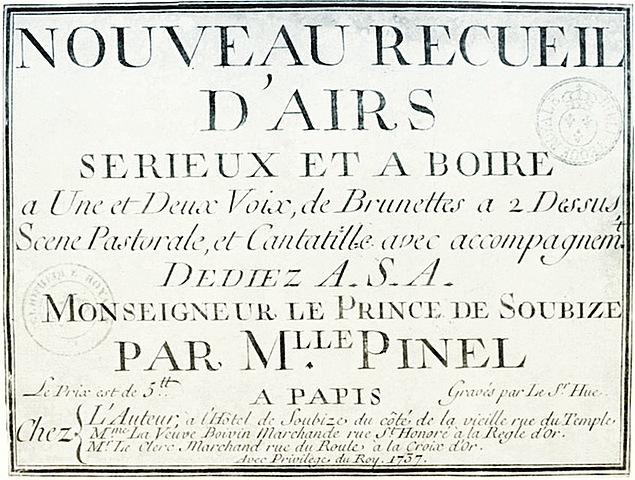 NOUVEAU RECUEIL
D'AIRS
SERIEUX ET A BOIRE
a Une et Deux Voix, de Brunettes a 2 Dessus,
Scene Pastorale, et Cantatille avec accompagnem.t
DEDIEZ A. S. A.
MONSEIGNEUR LE PRINCE DE SOUBIZE
PAR M.LLE PINEL
Le Prix est de 5.tt
A PARIS
Gravés par Le S.r Hue.
Chez
L'Auteur, à l'Hôtel de Soubize du côté de la vieille rue du Temple.
M.me La Veuve Boivin Marchande rue S.t Honoré à la Regle d'or.
M.r Le Clerc Marchand rue du Roule à la Croix d'or.
Avec Privilege du Roy. 1737.